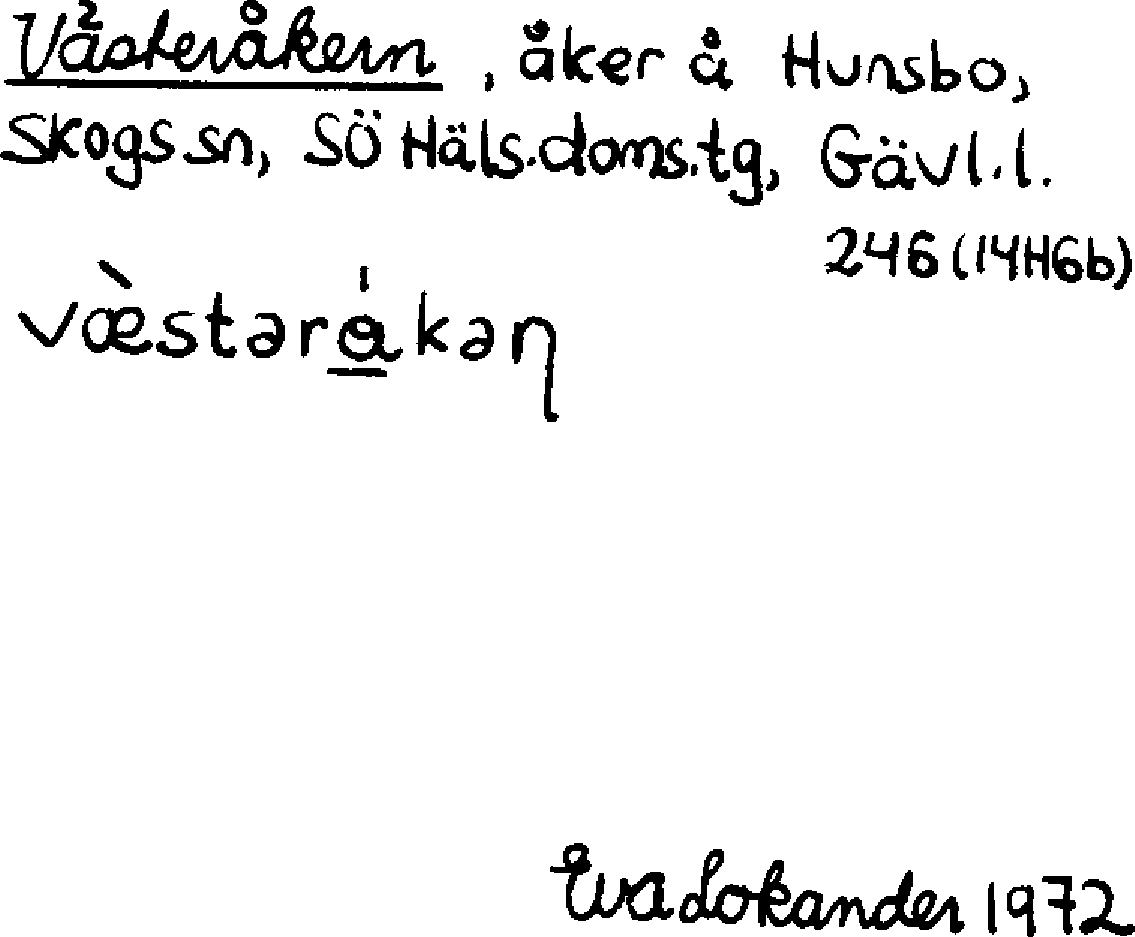 Västeråkern, åker å Hunsbo,
Skogs sn, SÖ Häls.doms.tg, Gävl.l.
246 (14H6b)
væ̀stərǻ̲kəη
Eva Lokander 1972